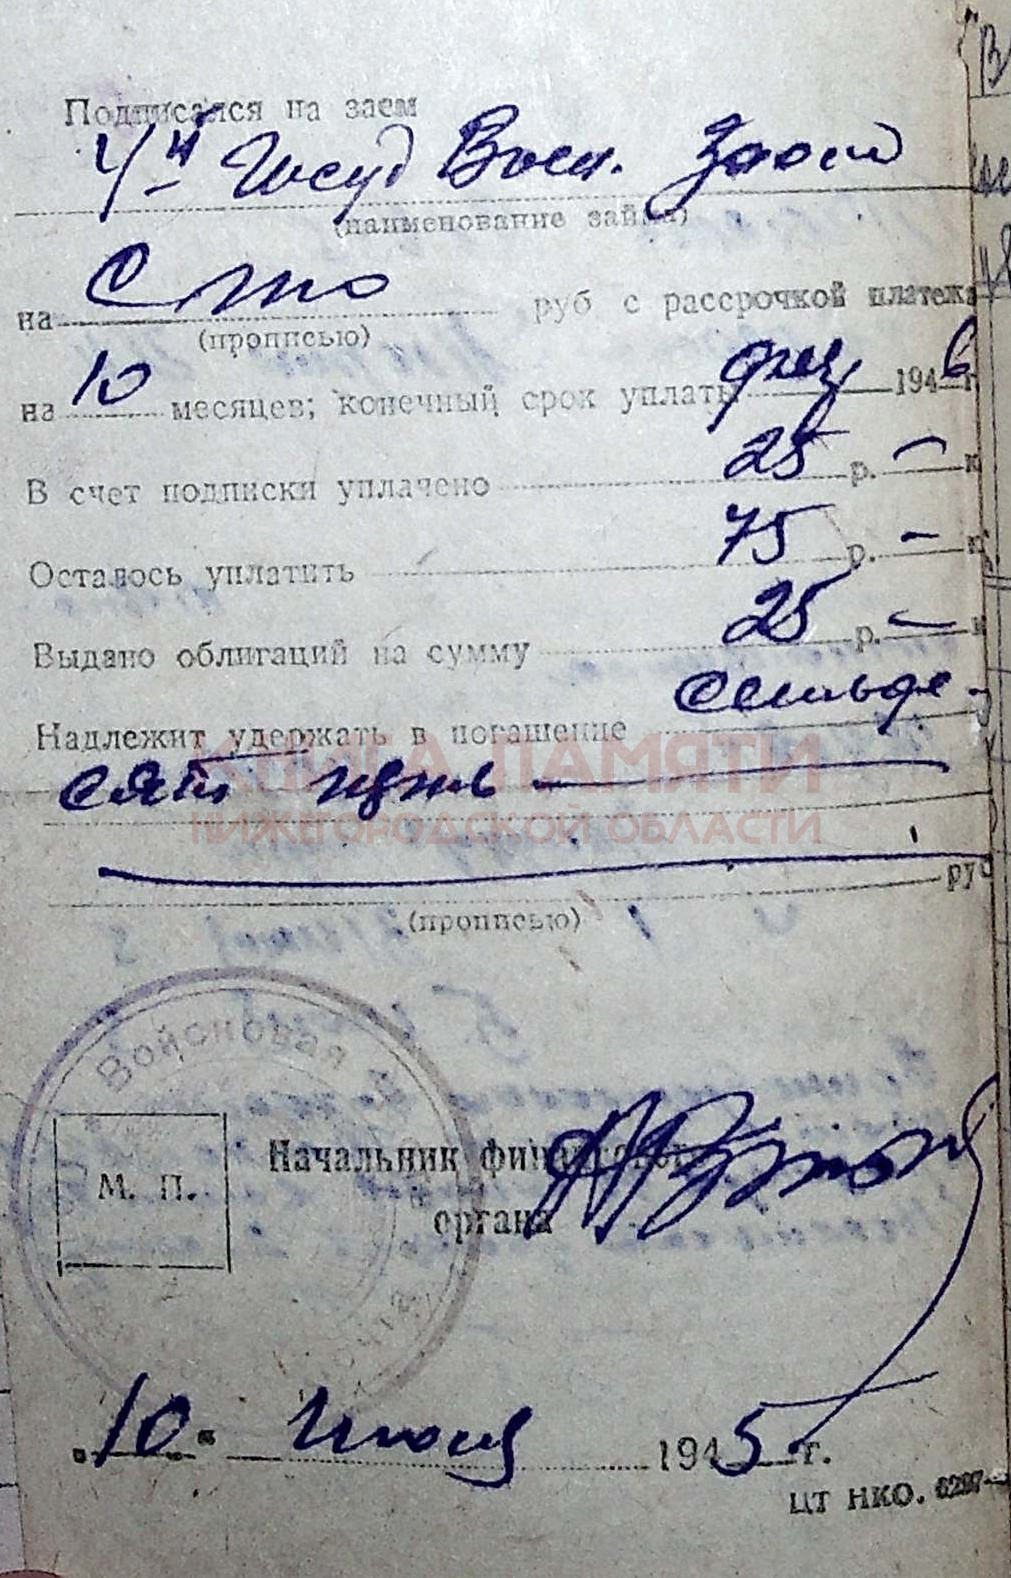 Подписался на заем
4й Госуд Воен. Заем
(наименование займа)
на Сто руб с рассрочкой платежа
(прописью)
на 10 месяцев; конечный срок уплаты 1946 г
В счет подписки уплачено 25 р. — к
Осталось уплатить 75 р. — к
Выдано облигаций на сумму 25 р. — к
Надлежит удержать в погашение Семьде-
сят пять —
руб
(прописью)
КНИГА ПАМЯТИ
НИЖЕГОРОДСКОЙ ОБЛАСТИ
Войсковая
М. П.
Начальник финансового
органа
"10" Июля 1945 г.
ЦТ НКО.